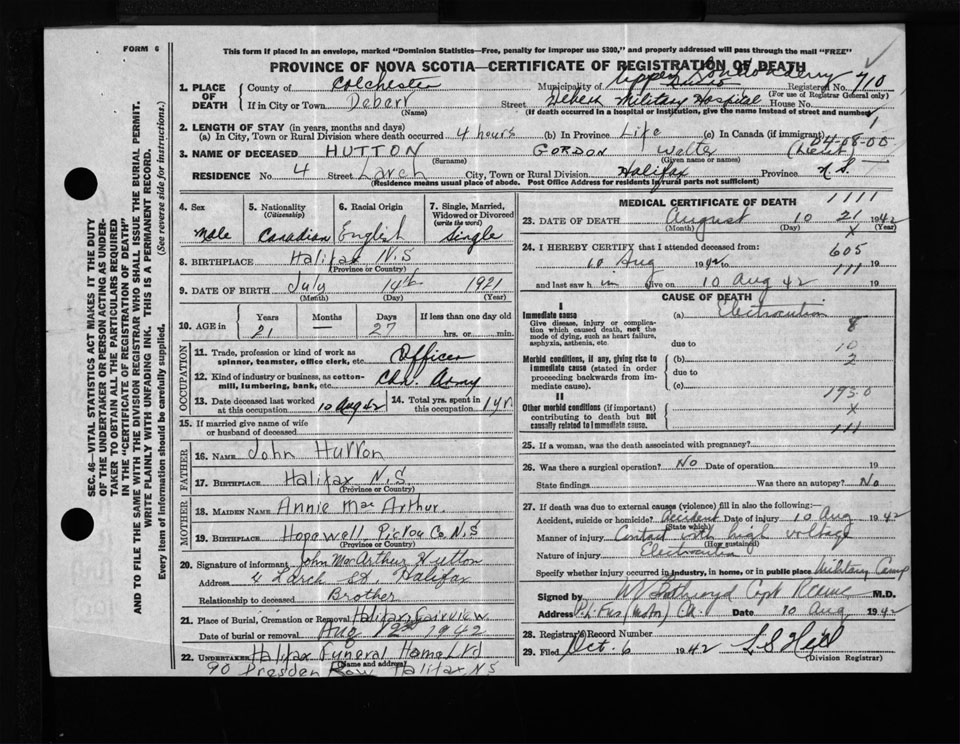 FORM 6
This form if placed in an envelope, marked "Dominion Statistics—Free, penalty for improper use $300," and properly addressed will pass through the mail "FREE"
PROVINCE OF NOVA SCOTIA—CERTIFICATE OF REGISTRATION OF DEATH
SEC. 46—VITAL STATISTICS ACT MAKES IT THE DUTY
OF THE UNDERTAKER OR PERSON ACTING AS UNDER-
TAKER TO OBTAIN ALL THE PARTICULARS REQUIRED
IN THE "CERTIFICATE OF REGISTRATION OF DEATH"
AND TO FILE THE SAME WITH THE DIVISION REGISTRAR WHO SHALL ISSUE THE BURIAL PERMIT.
WRITE PLAINLY WITH UNFADING INK. THIS IS A PERMANENT RECORD.
Every item of information should be carefully supplied. (See reverse side for instructions.)
1. PLACE OF DEATH
County of Colchester Municipality of Upper Londonderry Registered No. 710
(For use of Registrar General only)
If in City or Town Debert Street Debert Military Hospital House No.
(Name) (If death occurred in a hospital or institution, give the name instead of street and number)
1
2. LENGTH OF STAY (in years, months and days)
(a) In City, Town or Rural Division where death occurred 4 hours (b) In Province Life (c) In Canada (if immigrant)
04-08-00
3. NAME OF DECEASED HUTTON GORDON Walter (Lieut)
(Surname) (Given name or names)
RESIDENCE No. 4 Street Larch City, Town or Rural Division Halifax Province N.S.
(Residence means usual place of abode. Post Office Address for residents in rural parts not sufficient)
4. Sex
Male
5. Nationality
(Citizenship)
Canadian
6. Racial Origin
English
7. Single, Married, Widowed or Divorced
(write the word)
Single
8. BIRTHPLACE Halifax N.S
(Province or Country)
9. DATE OF BIRTH July 14th 1921
(Month) (Day) (Year)
10. AGE in
Years Months Days If less than one day old
21 — 27 hrs. or min.
OCCUPATION
11. Trade, profession or kind of work as
spinner, teamster, office clerk, etc. Officer
12. Kind of industry or business, as cotton-
mill, lumbering, bank, etc. Cdn. Army
13. Date deceased last worked
at this occupation 10 Aug 42
14. Total yrs. spent in
this occupation 1 yr.
15. If married give name of wife
or husband of deceased
FATHER
16. NAME John Hutton
17. BIRTHPLACE Halifax N.S.
(Province or Country)
MOTHER
18. MAIDEN NAME Annie MacArthur.
19. BIRTHPLACE Hopewell, Pictou Co. N.S
(Province or Country)
20. Signature of informant John MacArthur Hutton
Address 4 Larch St. Halifax
Relationship to deceased Brother
21. Place of Burial, Cremation or Removal Halifax Fairview
Date of burial or removal Aug 12nd 1942
22. UNDERTAKER Halifax Funeral Home Ltd
(Name and address)
90 Dresden Row, Halifax N.S
MEDICAL CERTIFICATE OF DEATH 1111
23. DATE OF DEATH August 10 21 1942
(Month) (Day) X (Year)
24. I HEREBY CERTIFY that I attended deceased from:
605
10 Aug 1942 to 19
111
and last saw him alive on 10 Aug 42 19
CAUSE OF DEATH
I
Immediate cause
Give disease, injury or complica-
tion which caused death, not the
mode of dying, such as heart failure,
asphyxia, asthenia, etc.
(a) Electrocution
8
due to
10
Morbid conditions, if any, giving rise to
immediate cause (stated in order
proceeding backwards from im-
mediate cause).
(b)
2
due to
(c)
1950
II
Other morbid conditions (if important)
contributing to death but not
causally related to immediate cause.
X
111
25. If a woman, was the death associated with pregnancy?
26. Was there a surgical operation? No Date of operation 19
State findings Was there an autopsy? No
27. If death was due to external causes (violence) fill in also the following:
Accident, suicide or homicide? Accident Date of injury 10 Aug 1942
(State which)
Manner of injury Contact with high voltage
(How sustained)
Nature of injury Electrocution
Specify whether injury occurred in industry, in home, or in public place Military Camp
Signed by Capt M.D.
Address Date 10 Aug 1942
28. Registrar's Record Number
29. Filed Oct. 6 1942
(Division Registrar)